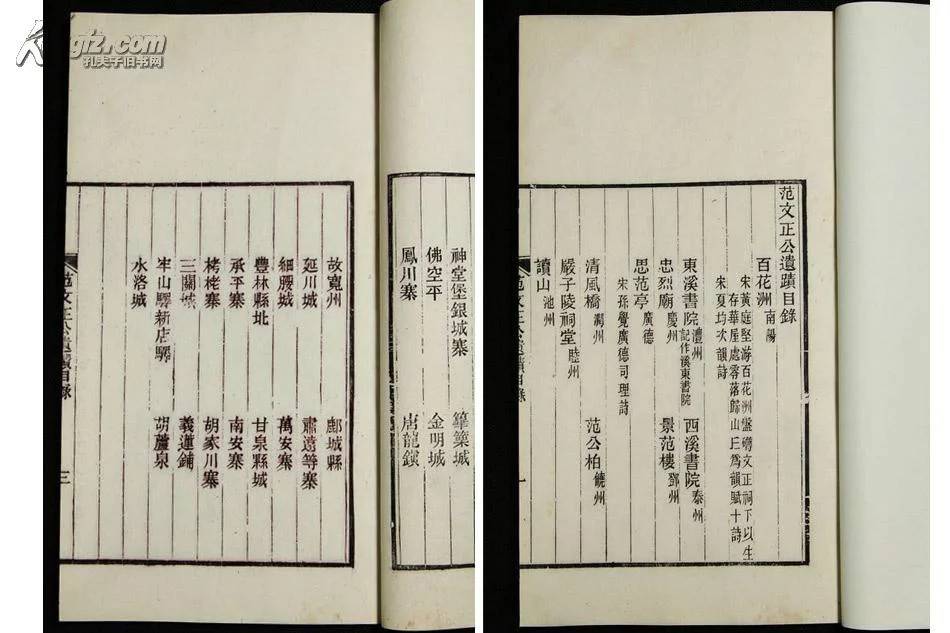 范文正公遺蹟目錄
百花洲南陽
宋黃庭堅游百花洲盤礴文正祠下以生
存華屋處零落歸山丘為韻賦十詩
宋夏均次韻詩
東溪書院澧州 記作溪東書院 西溪書院泰州
忠烈廟慶州 景范樓鄧州
思范亭廣德
宋孫覺廣德司理詩
清風橋潤州 范公柏饒州
嚴子陵祠堂睦州
讀山池州
范文正公遺蹟目錄 一
神堂堡銀城寨 篳篥城
佛空平 金明城
鳳川寨 唐龍鎮
故寬州 鄜城縣
延川城 肅遠等寨
細腰城 萬安寨
豐林縣北 甘泉縣城
承平寨 南安寨
栲栳寨 胡家川寨
三關城 義蓮鋪
牢山驛新店驛 胡蘆泉
水洛城
范文正公遺蹟目錄 三
孔夫子旧书网